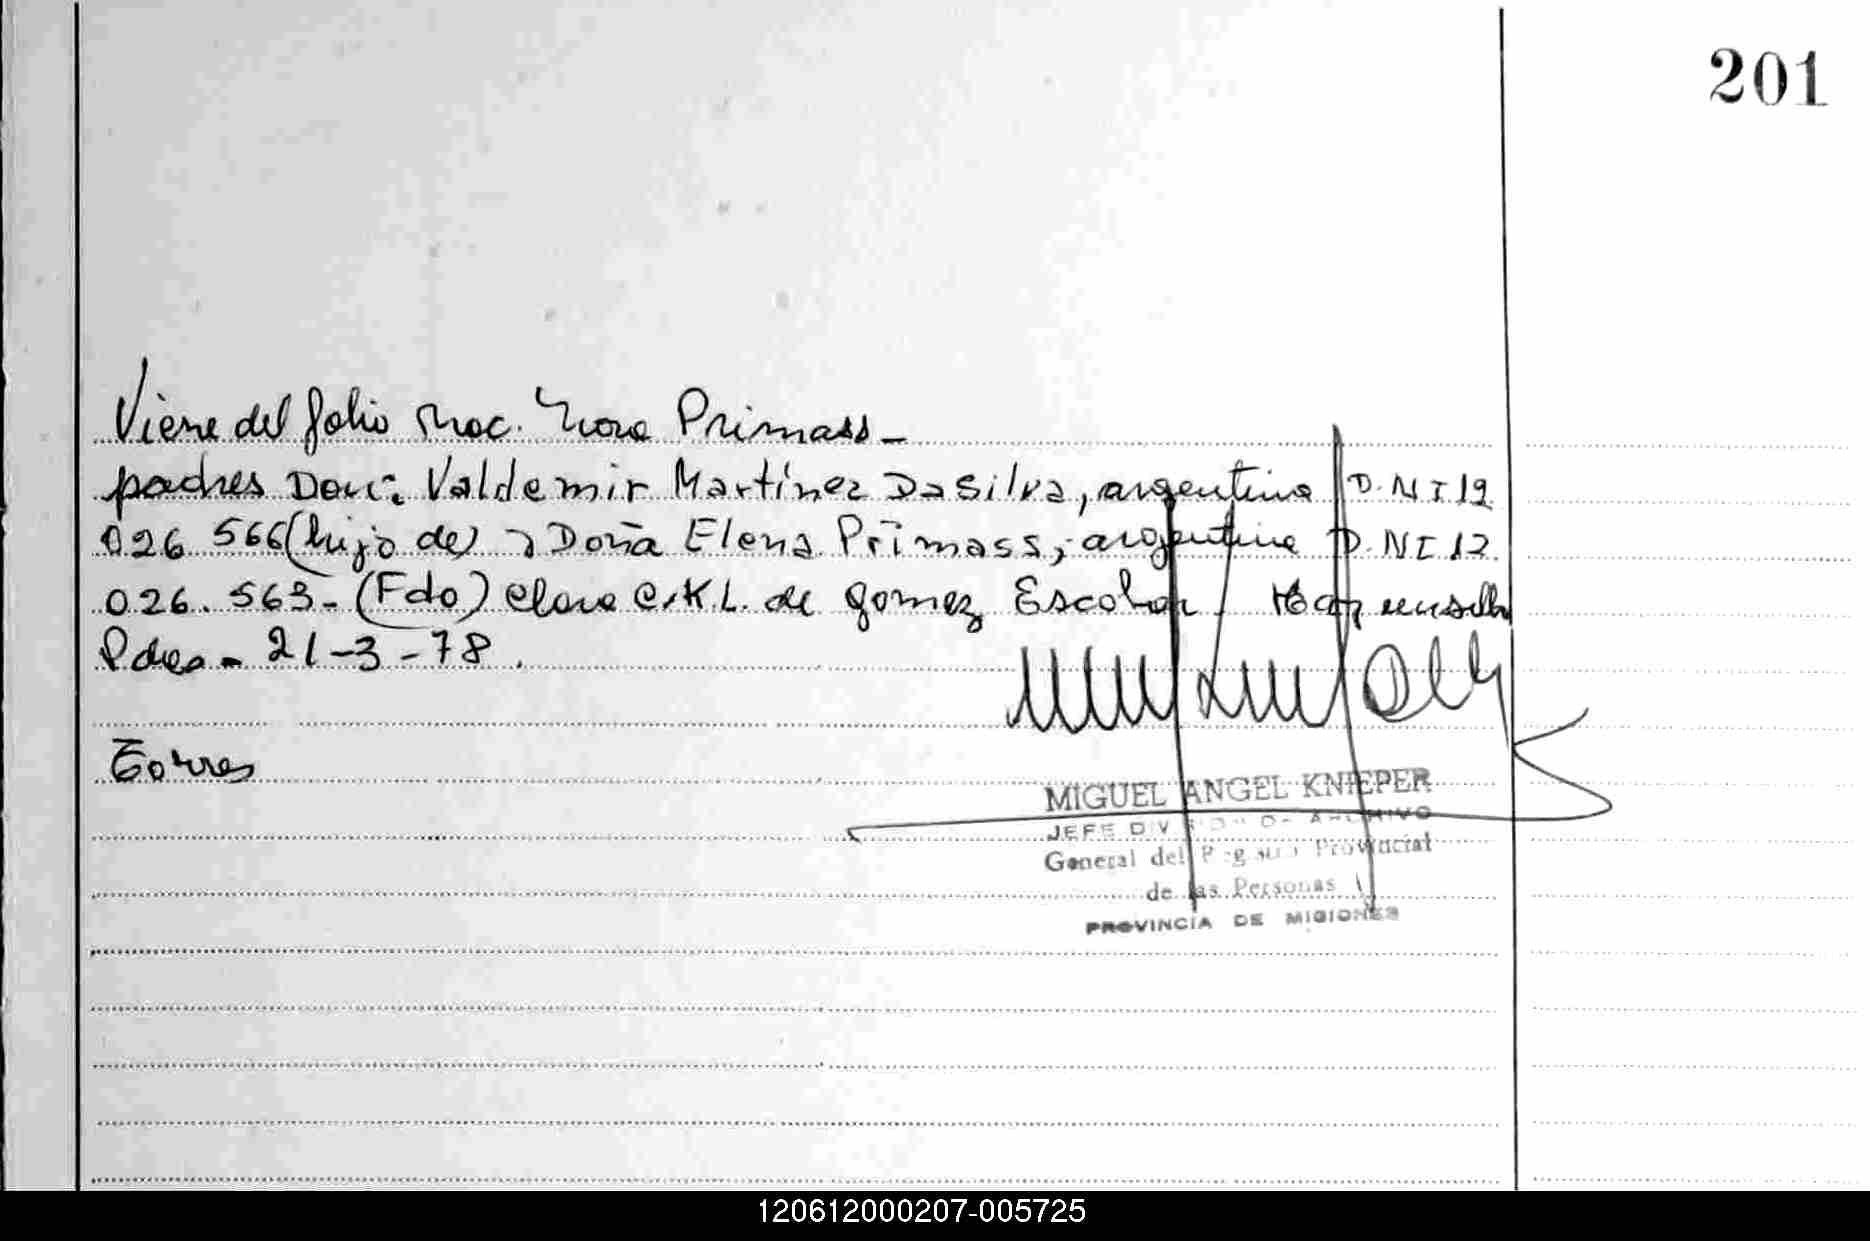 201
Viene del folio Nac. Nora Primass -
padres Don: Valdemir Martínez Da Silva, argentino D. N I 19
026 566 (hijo de) y Doña Elena Primass, argentina D. N I 12
026. 563 - (Fdo) Clara C. K L. de Gomez Escobar
Pdas - 21-3-78.
Torres
MIGUEL ANGEL KNIEPER
JEFE DIVISION DE ARCHIVO
General del Registro Provincial
de las Personas
PROVINCIA DE MISIONES
120612000207-005725